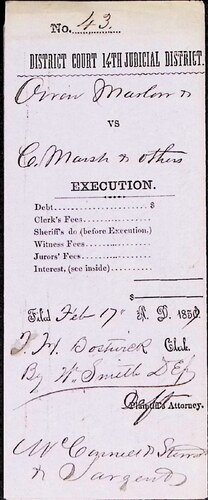 No. 43.
DISTRICT COURT 14TH JUDICIAL DISTRICT.
Orren Marlow &
VS
C. Marsh & others
EXECUTION.
Debt $
Clerk's Fees
Sheriff's do (before Execution.)
Witness Fees
Jurors' Fees
Interest, (see inside)
$
Filed Feb 17 A. D. 1859
T. H. Bostwick Clk.
By W. Smith D Ck
Deft
Plaintiff's Attorney.
McConnel &
& Sargent